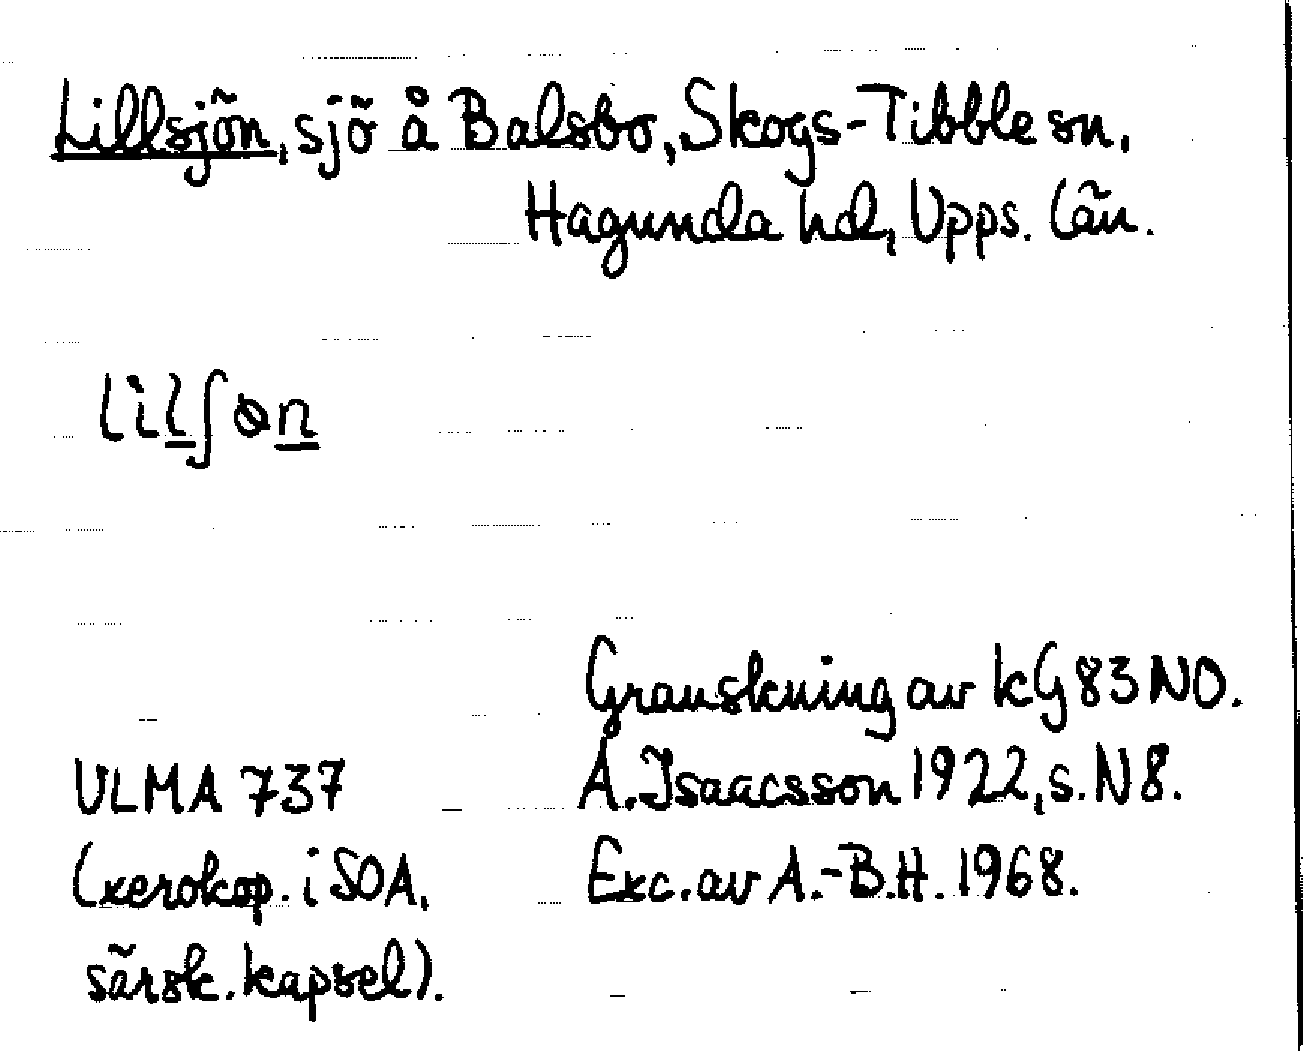 Lillsjön, sjö å Balsbo, Skogs-Tibble sn,
Hagunda hd, Upps. län.
lil̲ʃɵn̲
Granskning av kG 83 NO.
ULMA 737
A. Isaacsson 1922, s. N 8.
(xerokop. i SOA,
Exc. av A.-B.H. 1968.
särsk. kapsel).